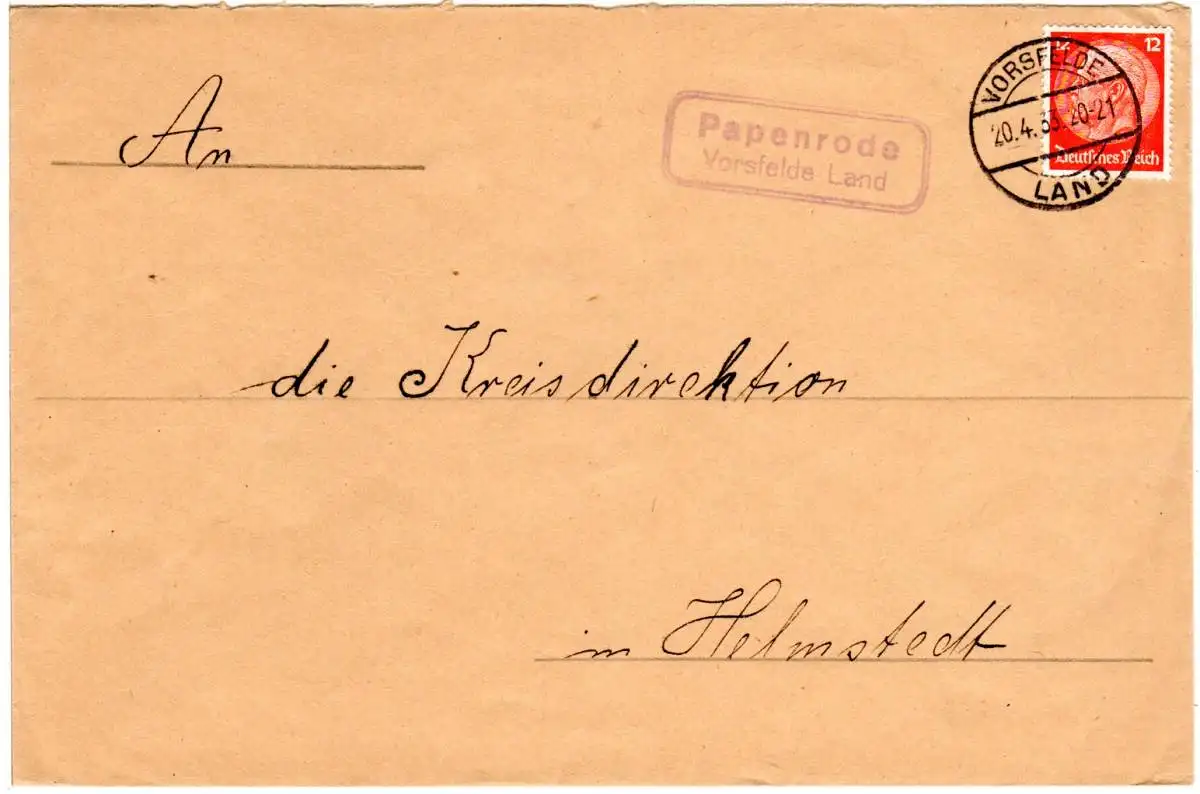 12 12
Deutsches Reich
VORSFELDE
20.4.33.20-21
LAND
Papenrode
Vorsfelde Land
An
die Kreisdirektion
in Helmstedt